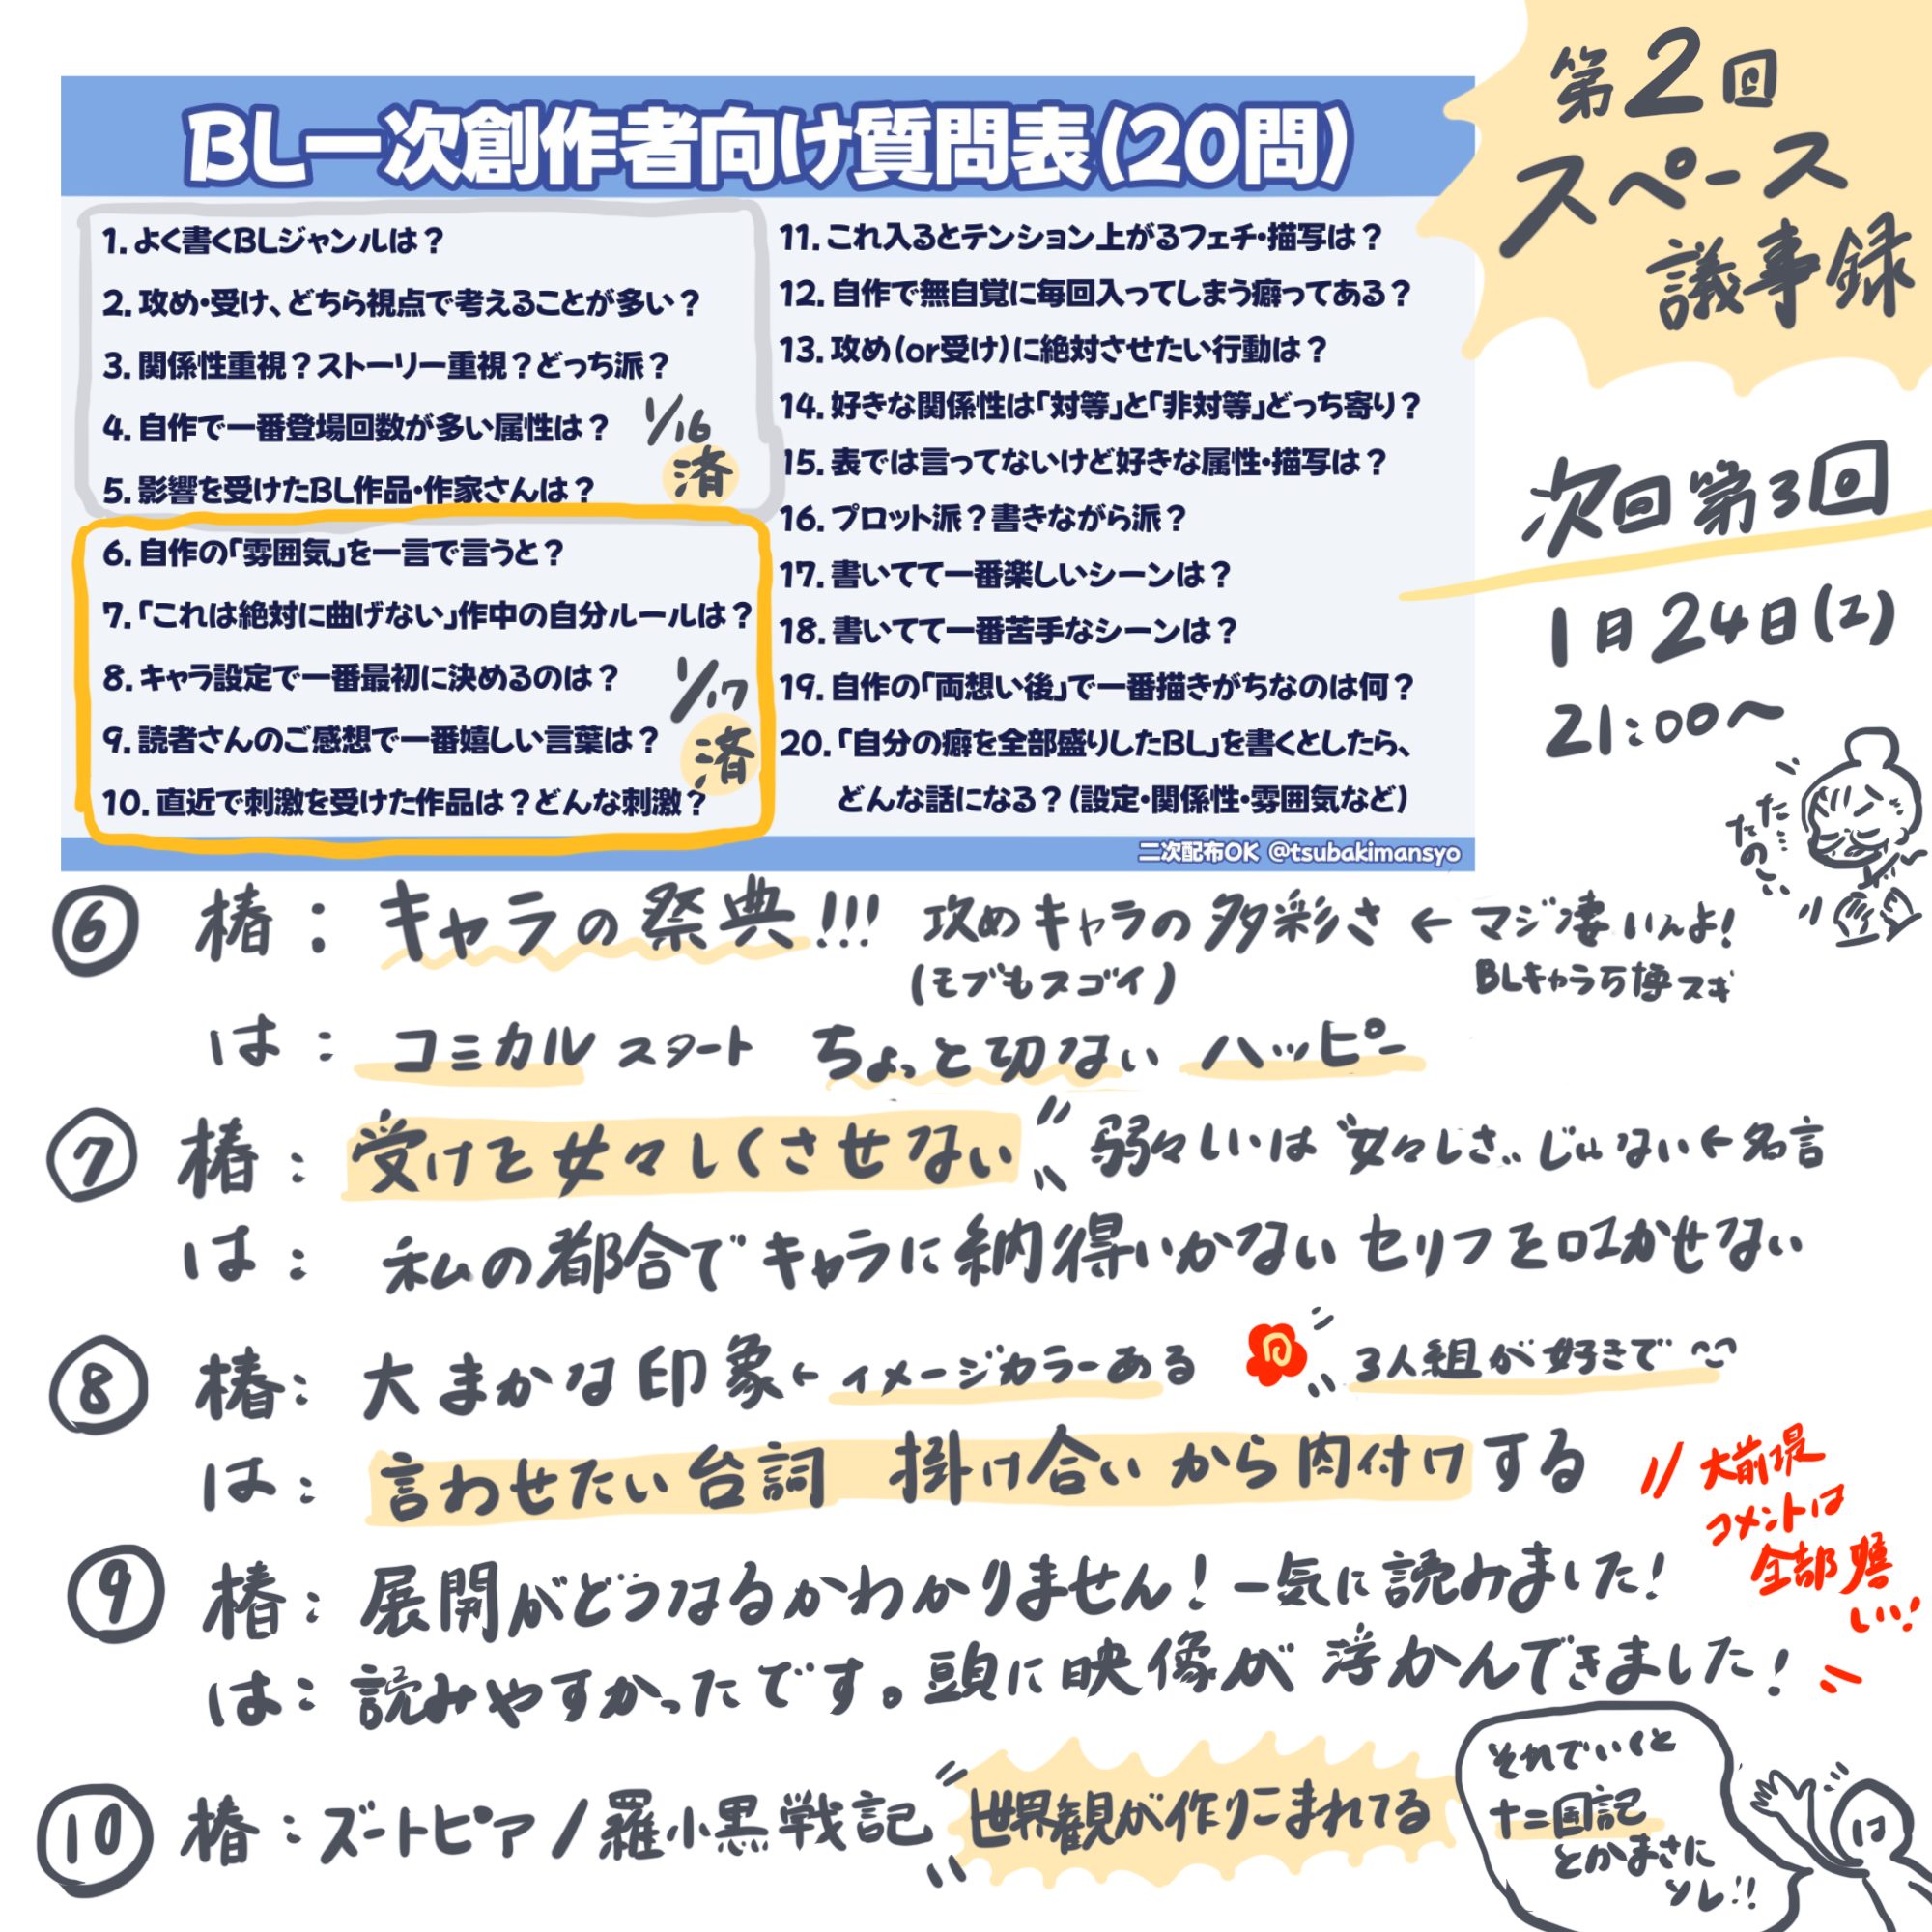 第2回
スペース
議事録
BL一次創作者向け質問表(20問)
1. よく書くBLジャンルは?
2. 攻め・受け、どちら視点で考えることが多い?
3. 関係性重視?ストーリー重視?どっち派?
4. 自作で一番登場回数が多い属性は?
5. 影響を受けたBL作品・作家さんは?
1/16
済
6. 自作の「雰囲気」を一言で言うと?
7. 「これは絶対に曲げない」作中の自分ルールは?
8. キャラ設定で一番最初に決めるのは?
9. 読者さんのご感想で一番嬉しい言葉は?
10. 直近で刺激を受けた作品は?どんな刺激?
1/17
済
11. これ入るとテンション上がるフェチ・描写は?
12. 自作で無自覚に毎回入ってしまう癖ってある?
13. 攻め(or受け)に絶対させたい行動は?
14. 好きな関係性は「対等」と「非対等」どっち寄り?
15. 表では言ってないけど好きな属性・描写は?
16. プロット派?書きながら派?
17. 書いてて一番楽しいシーンは?
18. 書いてて一番苦手なシーンは?
19. 自作の「両想い後」で一番描きがちなのは何?
20. 「自分の癖を全部盛りしたBL」を書くとしたら、
どんな話になる?(設定・関係性・雰囲気など)
二次配布OK @tsubakimansyo
次回第3回
1日24日(土)
21:00〜
た…
たのしい
⑥ 椿: キャラの祭典!!! 攻めキャラの多彩さ ← マジ凄いんよ!
(モブもスゴイ) BLキャラ万博スギ
は: コミカルスタート ちょっと切ない ハッピー
⑦ 椿: 受けを女々しくさせない 弱々しいは"女々しさ"じゃない←名言
は: 私の都合でキャラに納得いかないセリフを吐かせない
⑧ 椿: 大まかな印象←イメージカラーある 3人組が好きで
は: 言わせたい台詞 掛け合いから肉付けする
大前提
コメントは
全部嬉
しい!
⑨ 椿: 展開がどうなるかわかりません!一気に読みました!
は: 読みやすかったです。頭に映像が浮かんできました!
⑩ 椿: ズートピア/羅小黒戦記 世界観が作りこまれてる
それでいくと
十二国記
とかまさに
ソレ!!
は